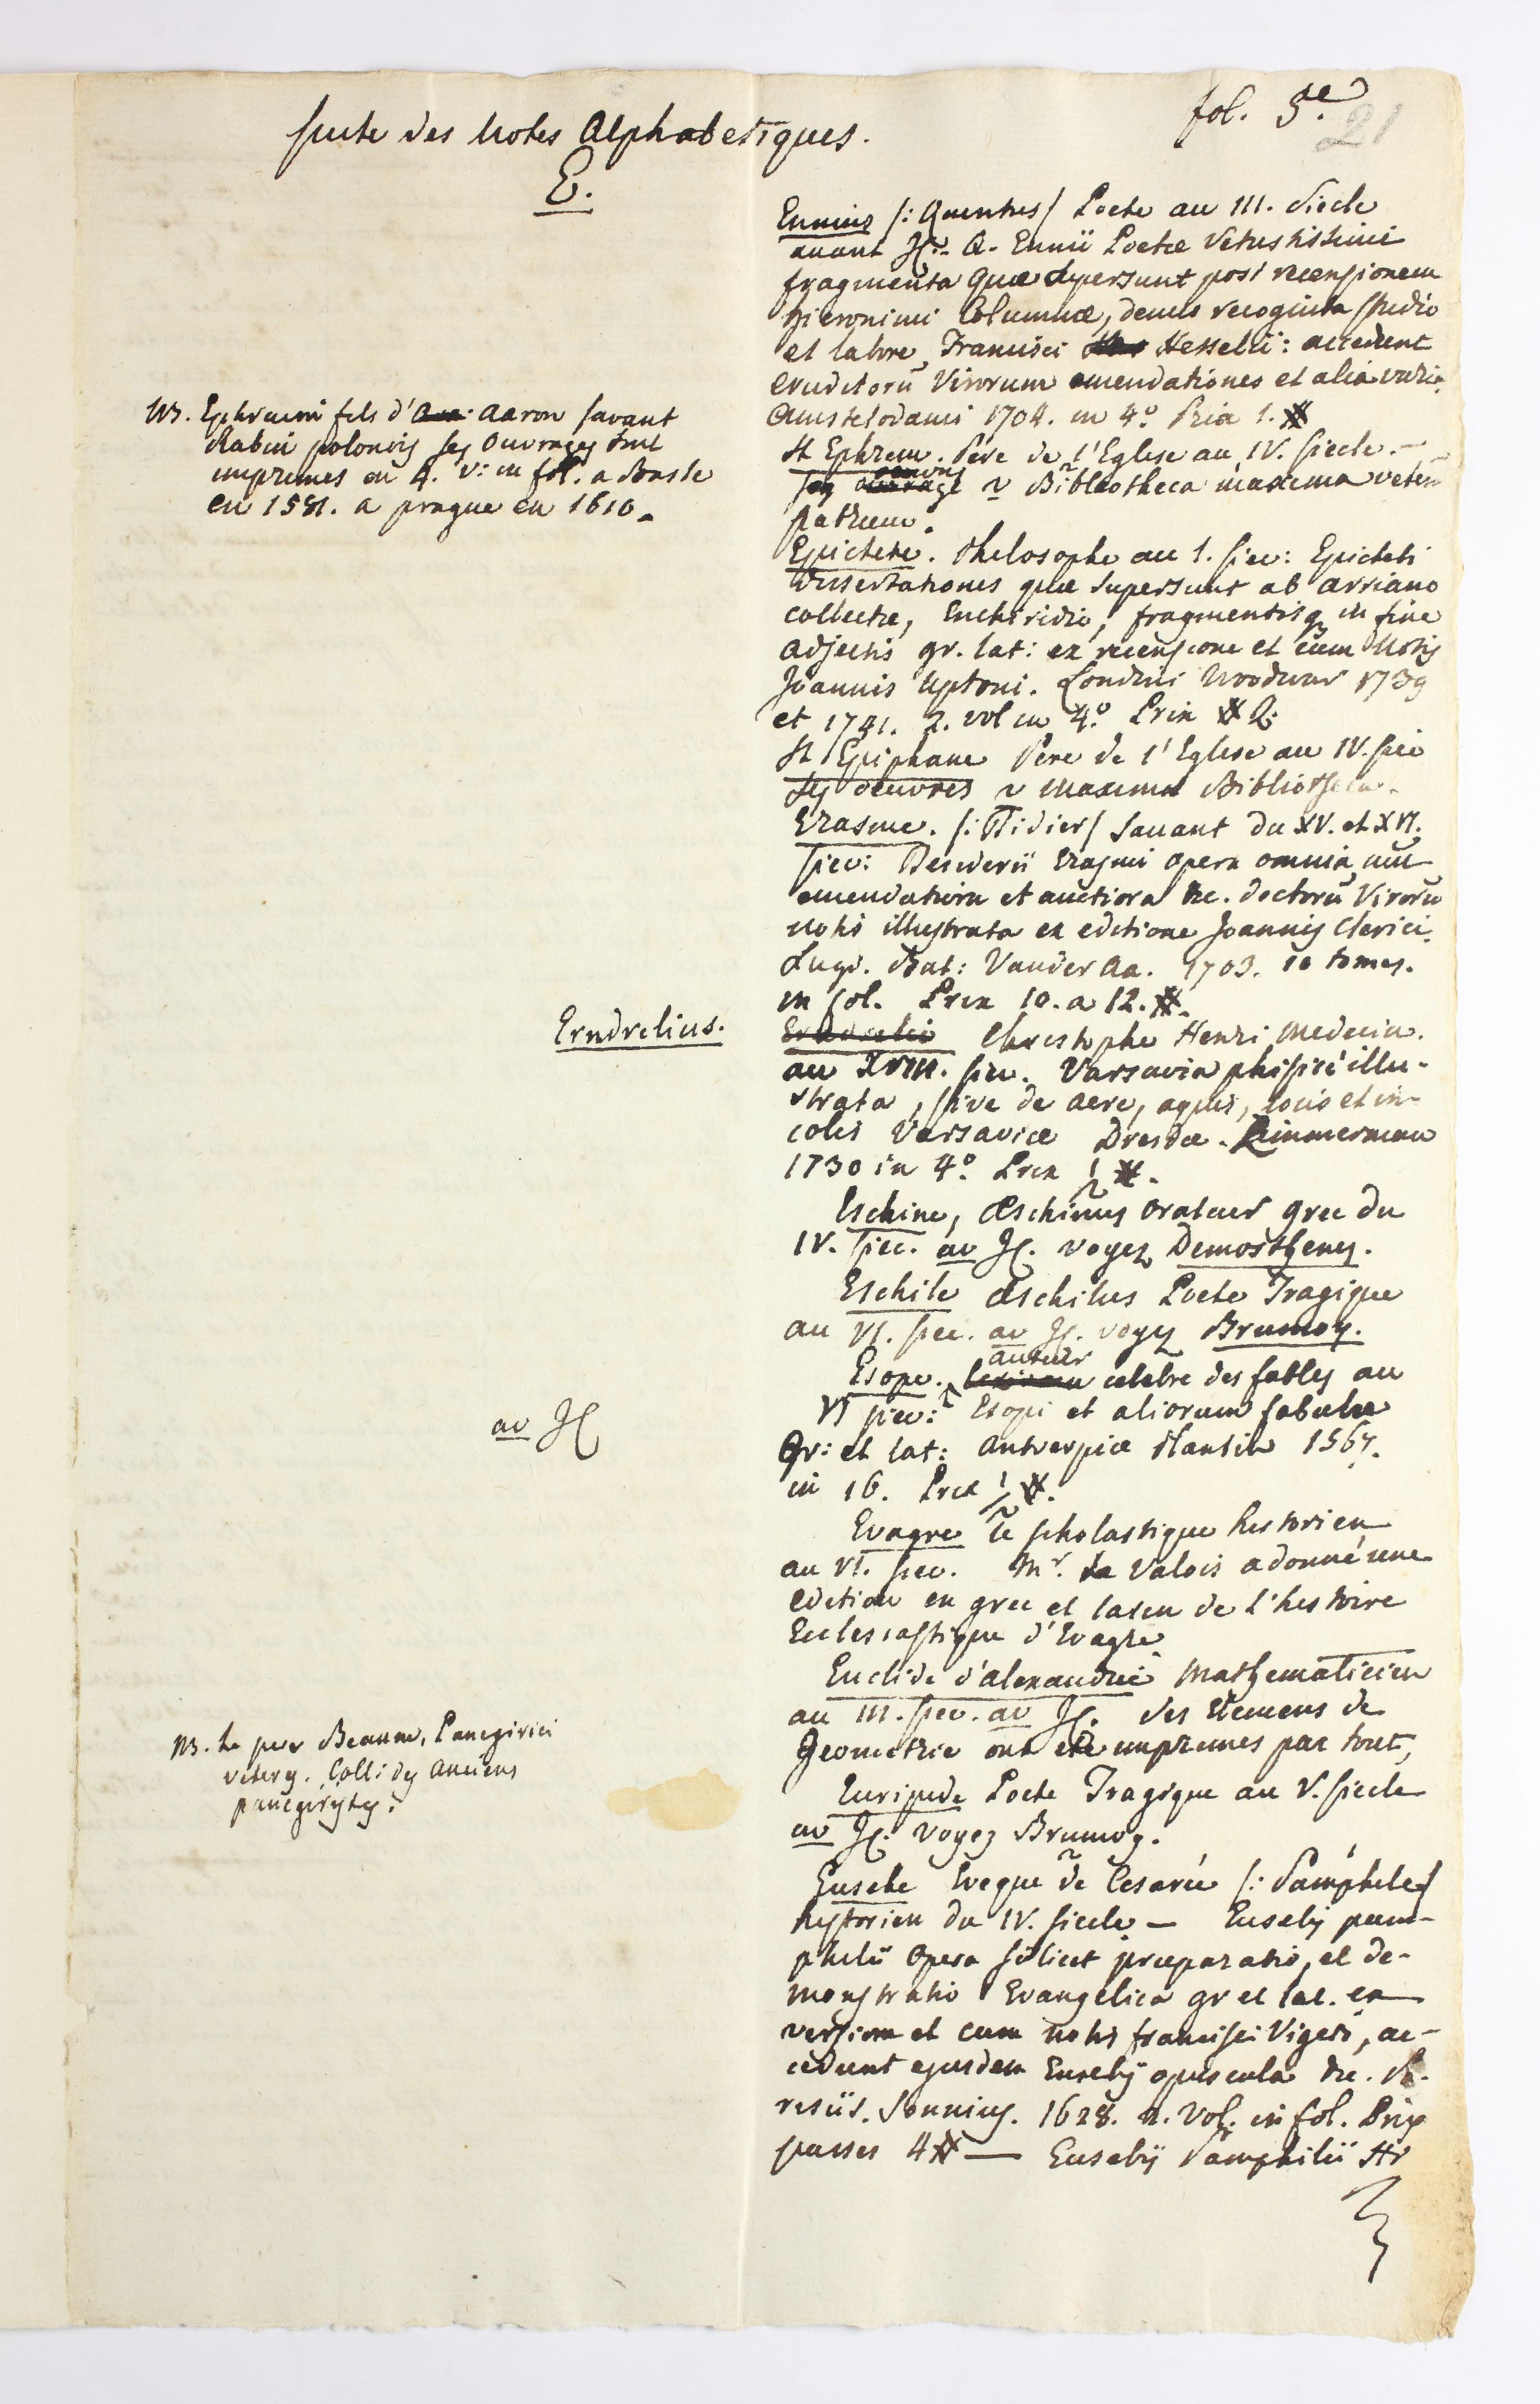 suite des Notes Alphabetiques.
fol. 5.e
21
E.
Ennius /: Quentus/ Poete au III. Siecle
avant JC. Q. Ennii Poetæ Vetustissimi
fragmenta quæ supersunt post recensionem
Hieronimi Columnæ, denuo recognita studio
et labore Francisci Hesselii: accedunt
eruditorū Virorum emendationes et alia varia
Amstelodami 1704. in 4.º Prix 1. #
NB. Ephraim fils d'Aaron savant
Rabin polonois ses Ouvrages sont
imprimes en 4. v: in fol. a Basle
en 1581. a prague en 1610.
St Ephrem. Pere de l'Eglise au IV. siecle.
ses oeuvres v Bibliotheca maxima veterū
patrum.
Epictete. Philosophe au 1. siec: Epicteti
Dissertationes quæ supersunt ab Arriano
collectæ, Enchiridio, fragmentisq in fine
adjectis gr. lat: ex recensione et cum Notis
Joannis Uptoni. Londini Woodwar 1739
et 1741. 2. vol in 4.º Prix # 2.
St Epiphane Pere de l'Eglise au IV. siec
ses oeuvres v Maxima Bibliotheca.
Erasme. /: Didier/ Savant du XV. et XVI.
siec: Desiderii Erasmi opera omnia
emendatiora et auctiora &c. doctorū Virorū
notis illustrata ex editione Joannis Clerici.
Lugd. Bat: Vander Aa. 1703. 10 tomes.
in fol. Prix 10. a 12. #.
Erndrelius.
Christophe Henri Medecin.
au XVIII. siec. Varsavia phisicè illu-
strata, sive de aere, aquis, locis et in-
colis Varsaviæ Dresdæ. Zimmerman
1730 in 4.º Prix 1/2 #.
Eschine, Æschinus Orateur grec du
IV. siec. av JC. voyez Demosthenes.
Eschile Æschilus Poete Tragique
au VI. siec. av JC. voyez Brumoy.
Esope. auteur celebre des fables au
VI siec: Esopi et aliorum fabulæ
av JC
Gr: et lat: Antverpiæ Plantin 1567.
in 16. Prix 1/2 #.
Evagre le scholastique historien
au VI. siec. Mr. de Valois a donné une
edition en grec et latin de l'histoire
Ecclesiastique d'Evagre
Euclide d'Alexandrie Mathematicien
au III. siec. av JC. ses Elemens de
Geometrie ont eté imprimes par tout,
NB. le per Beaune, Panegirici
veteres. Coll: des Anciens
panegiristes.
Euripide Poete Tragique au V. siecle
av JC. voyez Brumoy.
Eusebe Eveque de Cesarée /: Pamphile/
historien du IV. siecle — Eusebij pam-
philii Opera scilicet præparatio, et de-
monstratio Evangelica gr et lat. ex
versione et cum notis francisci Vigeri, ac-
cedunt ejusdem Eusebij opuscula &c. Pa-
resiis. Sonnius. 1628. 2. Vol. in fol. Prix
passes 4 # — Eusebij Pamphilii Hi